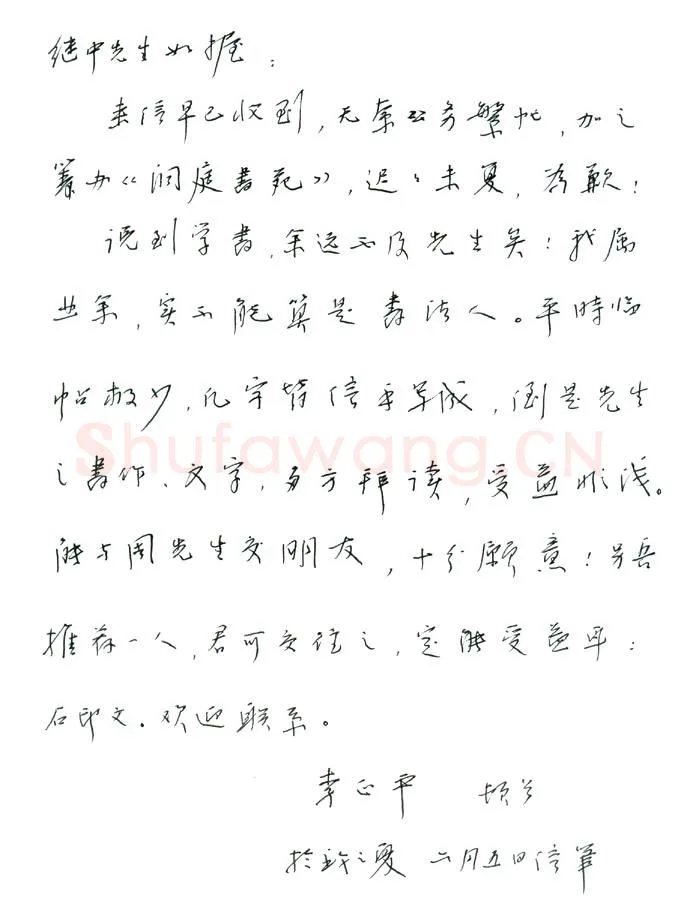 继中先生如握：
来信早已收到，无奈公务繁忙，加之
筹办《洞庭书苑》，迟迟未复，为歉！
说到学书，余远不及先生矣！我属
业余，实不能算是书法人。平时临
帖极少，凡字皆信手草成，倒是先生
之书作、文字，多方拜读，受益非浅。
能与周先生交朋友，十分愿意！另吾
推荐一人，君可交往之，定能受益耳：
石印文。欢迎联系。
李正平 顿首
于之夏 六月五日信笔
Shufawang.CN